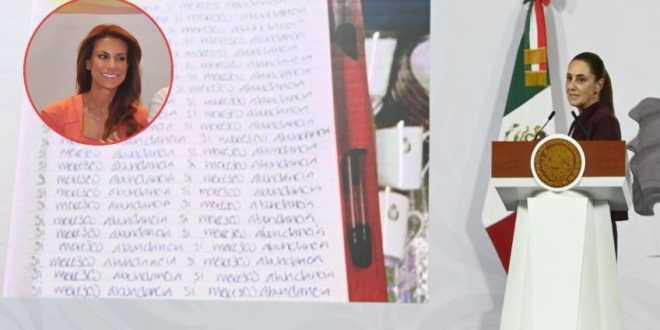 si merezco abundancia
si merezco abundancia
si merezco abundancia
si merezco abundancia
si merezco abundancia
si merezco abundancia
si merezco abundancia
si merezco abundancia
si merezco abundancia
si merezco abundancia
abundancia si merezco abundancia
si merezco abundancia si merezco abundancia
si merezco abundancia si merezco abundancia
si merezco abundancia si merezco abundancia
si merezco abundancia si merezco abundancia
si merezco abundancia si merezco abundancia
si merezco abundancia si merezco abundancia
si merezco abundancia si merezco abundancia
si merezco abundancia si merezco abundancia
si merezco abundancia si merezco abundancia
si merezco abundancia si merezco abundancia
si merezco abundancia si merezco abundancia